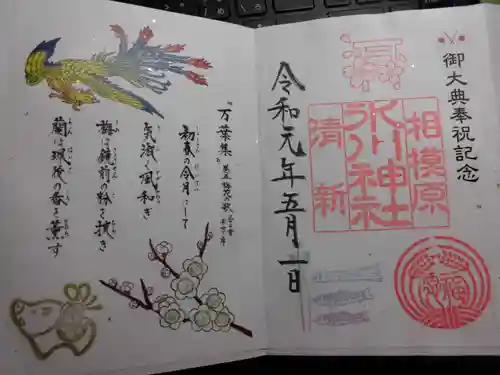 御大典奉祝記念
相模原
氷川神社
清新
令和元年五月一日
万葉集
初春の令月にして
気淑く風和ぎ
梅は鏡前の粉を披き
蘭は珮後の香を薫す